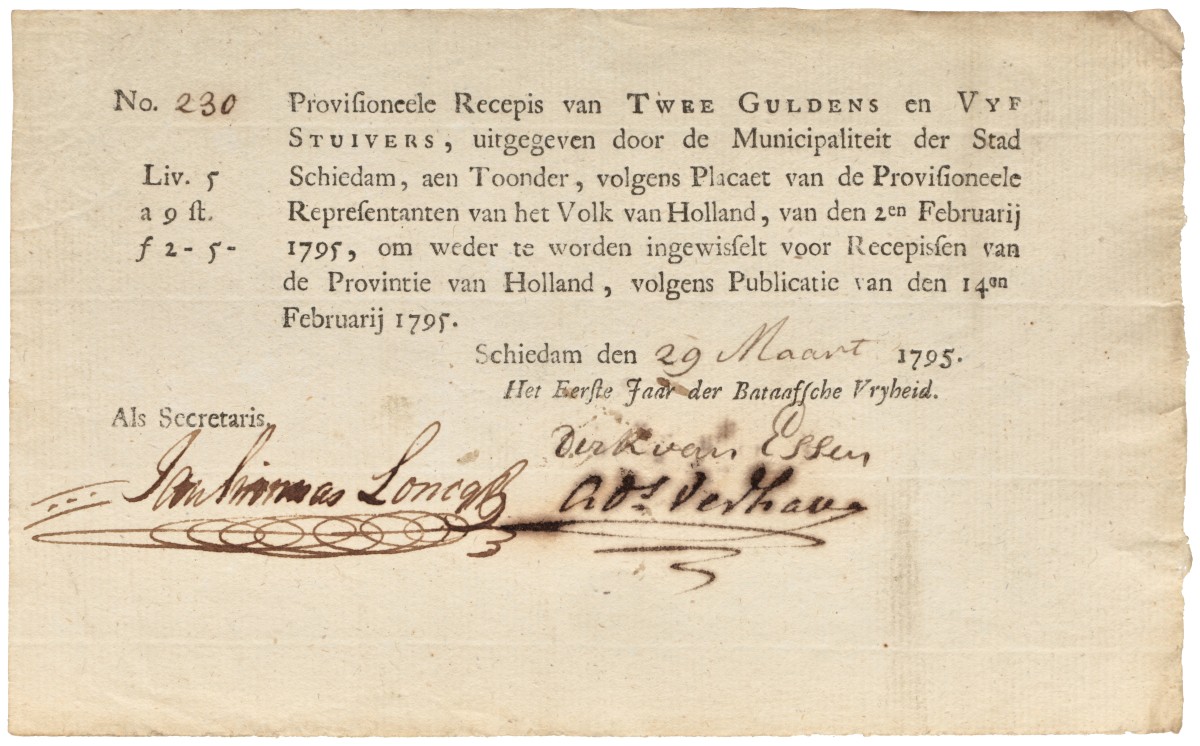 No. 230 Proviſioneele Recepis van TWEE GULDENS en VYF
STUIVERS, uitgegeven door de Municipaliteit der Stad
Liv. 5 Schiedam, aen Toonder, volgens Placaet van de Proviſioneele
a 9 ſt. Repreſentanten van het Volk van Holland, van den 2en Februarij
f 2-5- 1795, om weder te worden ingewiſſelt voor Recepisſen van
de Provintie van Holland, volgens Publicatie van den 14en
Februarij 1795.
Schiedam den 29 Maart 1795.
Het Eerſte Jaar der Bataafſche Vryheid.
Als Secretaris,
Dirk van Essen
Loncq
Ads. Verhave